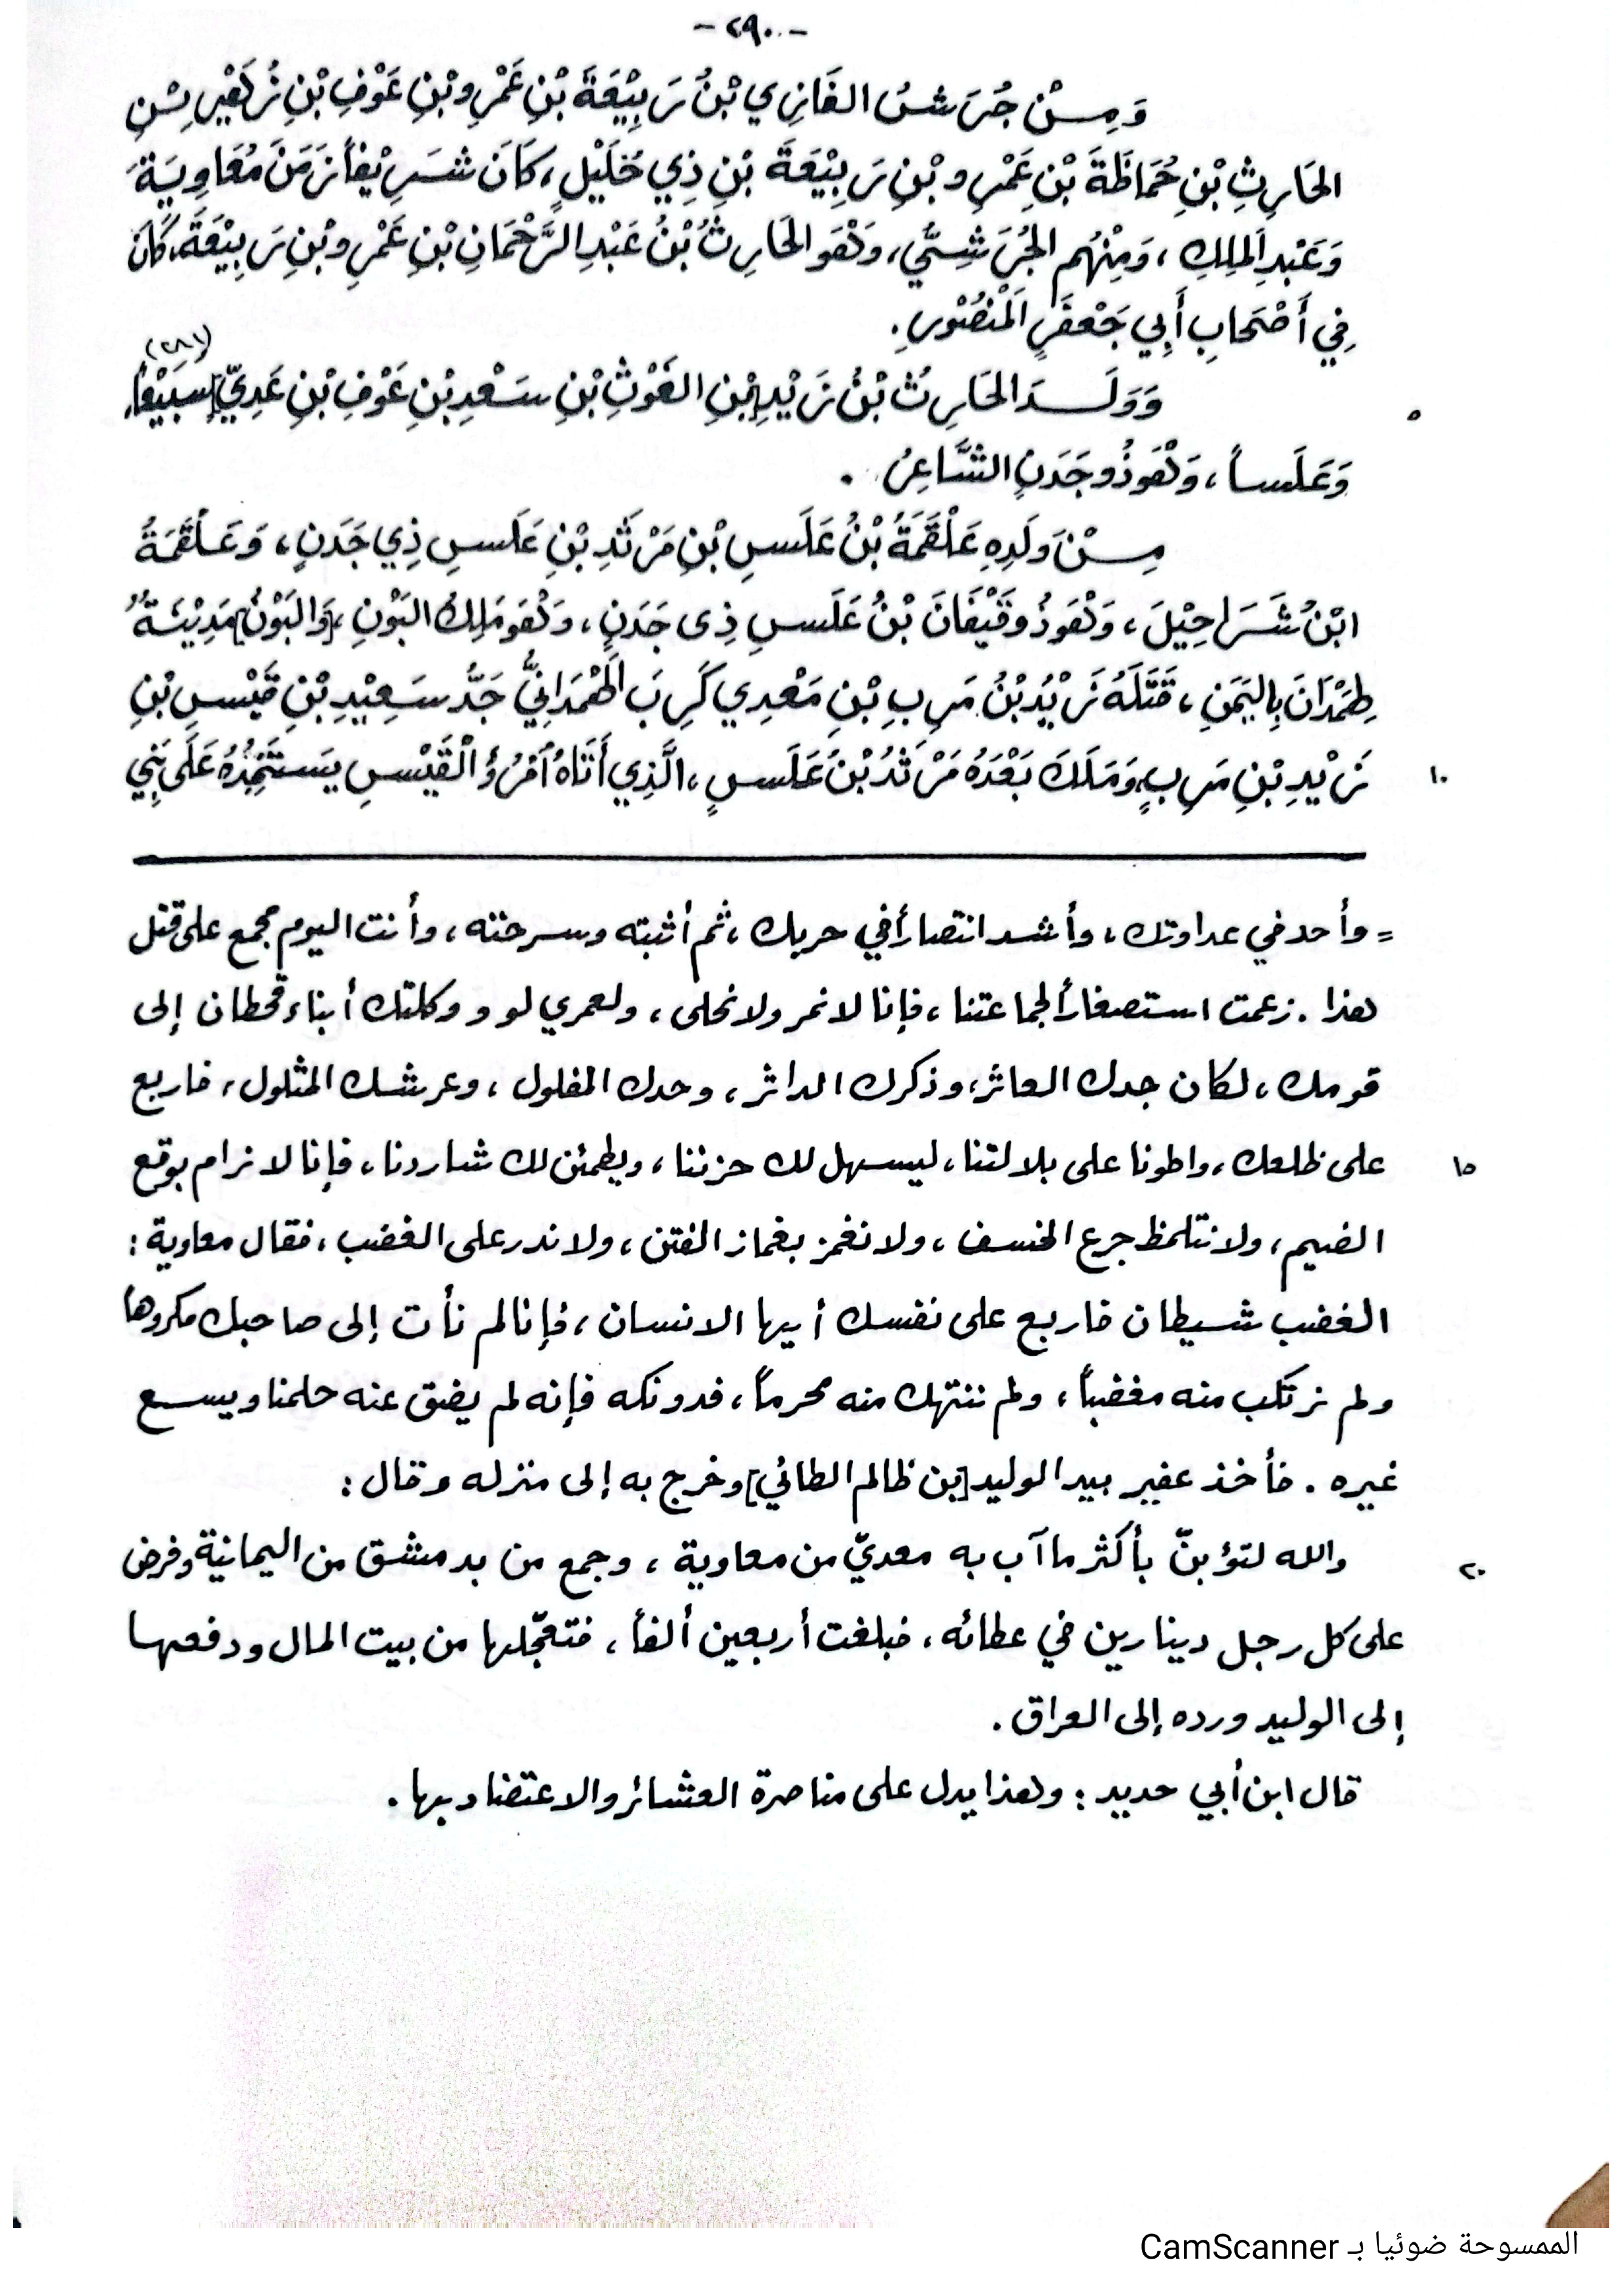 -٢٩٠-
وَمِنْ جُرَشَ الغَازِي بْنُ رَبِيْعَةَ بْنِ عَمْرِو بْنِ عَوْفِ بْنِ زُهَيْرِ بْنِ
الحَارِثِ بْنِ حُمَاظَةَ بْنِ عَمْرِو بْنِ رَبِيْعَةَ بْنِ ذِي خَلِيْلٍ، كَانَ شَرِيْفاً زَمَنَ مُعَاوِيَةَ
وَعَبْدِ المَلِكِ، وَمِنْهُم الجُرَشِيُّ، وَهُوَ الحَارِثُ بْنُ عَبْدِ الرَّحْمَانِ بْنِ عَمْرِو بْنِ رَبِيْعَةَ، كَانَ
فِي أَصْحَابِ أَبِي جَعْفَرٍ المَنْصُوْرِ.
(٢٨١)
٥ وَوَلَدَ الحَارِثُ بْنُ زَيْدِ بْنِ الغَوْثِ بْنِ سَعْدِ بْنِ عَوْفِ بْنِ عَدِيٍّ [سُبَيْعاً]،
وَعَلَساً، وَهُوَ ذُو جَدَنٍ الشَّاعِرُ.
مِنْ وَلَدِهِ عَلْقَمَةُ بْنُ عَلَسِ بْنِ مَرْثَدِ بْنِ عَلَسِ ذِي جَدَنٍ، وَعَلْقَمَةُ
ابْنُ شَرَاحِيْلَ، وَهُوَ ذُو قَيْفَانَ بْنُ عَلَسِ ذِى جَدَنٍ، وَهُوَ مَلِكُ البَوْنِ، [وَالبَوْنُ] مَدِيْنَةٌ
لِهَمْدَانَ بِاليَمَنِ، قَتَلَهُ زَيْدُ بْنُ مَرِبِ بْنِ مَعْدِي كَرِبَ الهَمْدَانِيُّ جَدُّ سَعِيْدِ بْنِ قَيْسِ بْنِ
١٠ زَيْدِ بْنِ مَرِبٍ، وَمَلَكَ بَعْدَهُ مَرْثَدُ بْنُ عَلَسٍ، الَّذِي أَتَاهُ امْرُؤُ الْقَيْسِ يَسْتَمِدُّهُ عَلَى بَنِي
= وأحد في عداوتك، وأشد انتصاراً في حربك، ثم أثبته وسرحته، وأنت اليوم مجمع على قتل
هذا. زعمت استصغاراً لجماعتنا، فإنا لا نمر ولا نحلى، ولعمري لو وكلتك أبناء قحطان إلى
قومك، لكان جدك العاثر، وذكرك الداثر، وحدك المفلول، وعرشك المثلول، فاربع
١٥ على ظلعك، واطونا على بلالتنا، ليسهل لك حزننا، ويطمئن لك شاردنا، فإنا لا نرام بوقع
الضيم، ولا نتلمظ جرع الخسف، ولا نغمز بغماز الفتن، ولا ندر على الغضب، فقال معاوية:
الغضب شيطان فاربع على نفسك أيها الانسان، فإنا لم نأت إلى صاحبك مكروهاً
ولم نرتكب منه مغضباً، ولم ننتهك منه محرماً، فدونكه فإنه لم يضق عنه حلمنا ويسع
غيره. فأخذ عفير بيد الوليد [بن ظالم الطائي] وخرج به إلى منزله وقال:
٢٠ والله لتؤبنّ بأكثر ما آب به معديّ من معاوية، وجمع من بدمشق من اليمانية وفرض
على كل رجل دينارين في عطائه، فبلغت أربعين ألفاً، فتعجّلها من بيت المال ودفعها
إلى الوليد ورده إلى العراق.
قال ابن أبي حديد: وهذا يدل على مناصرة العشائر والاعتضاد بها.
الممسوحة ضوئيا بـ CamScanner